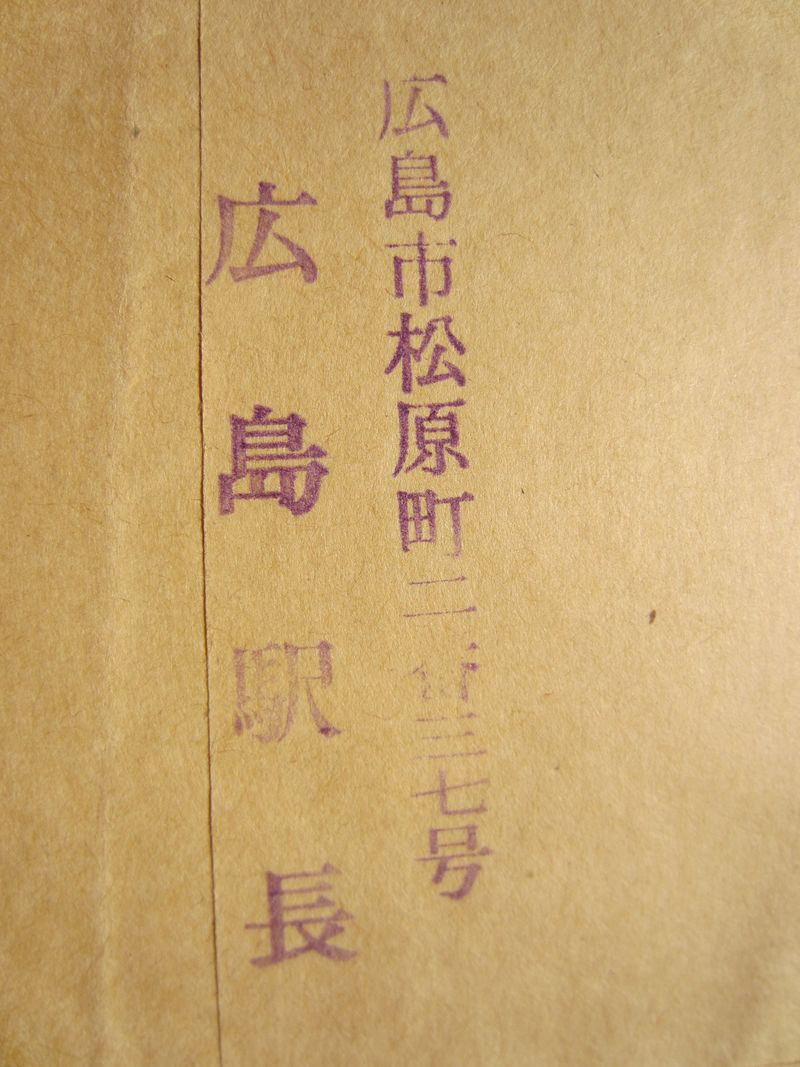 広島市松原町二番三七号
広島駅長